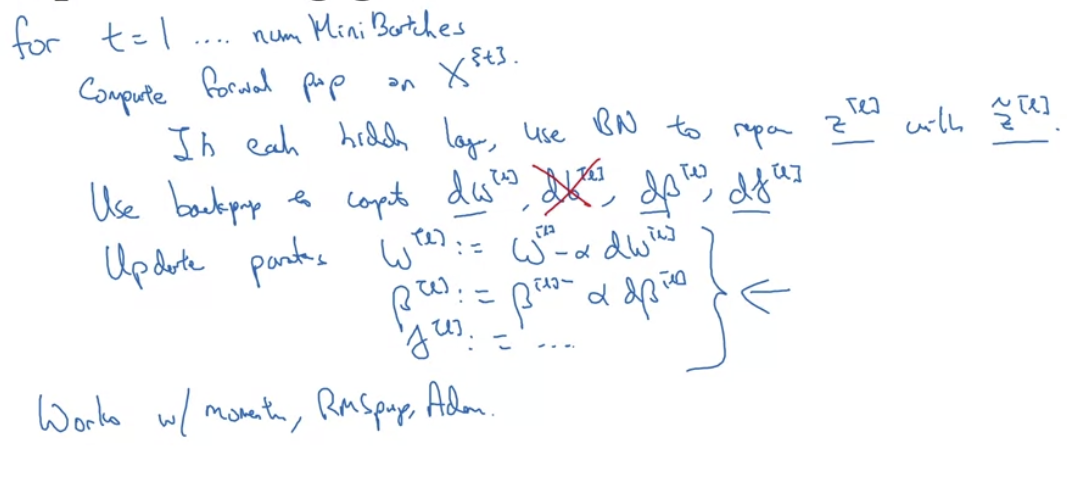 for t = 1 .... num Mini Batches
Compute forward prop on X^{t}.
In each hidden layer, use BN to repar z^[l] with z̃^[l].
Use backprop to compute dw^[l], db^[l], dβ^[l], dγ^[l]
Update params w^[l] := w^[l] - α dw^[l]
β^[l] := β^[l] - α dβ^[l]
γ^[l] := ....
Works w/ momentum, RMSprop, Adam.